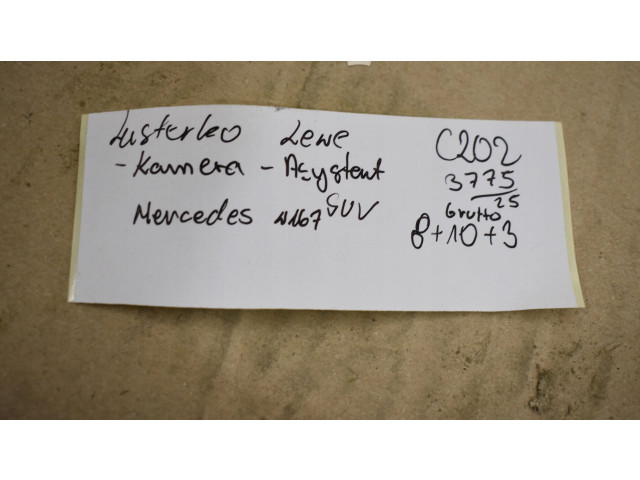 Lusterko Lewe
- Kamera - Asystent
Mercedes W167 SUV
C202
3775
25
Brutto
8+10+3